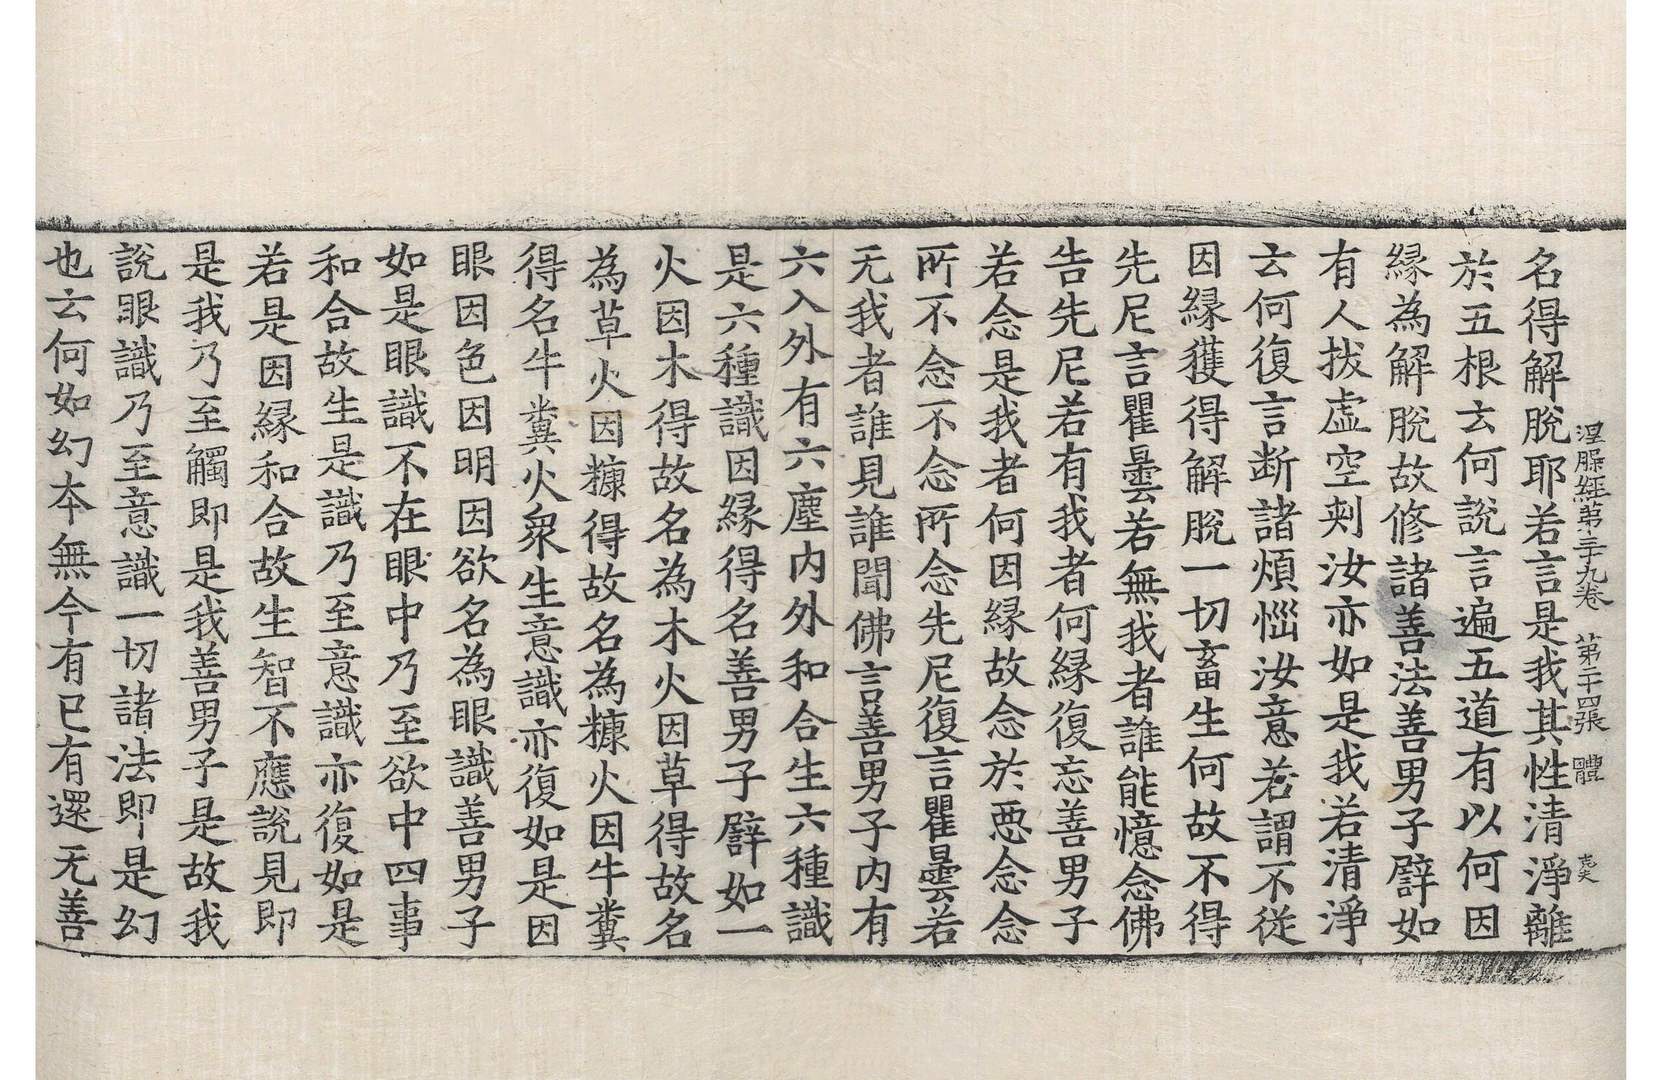 涅槃經第三十九卷　第二十四張　體
名得解脫耶若言是我其性清淨離
於五根云何說言遍五道有以何因
縁為解脫故修諸善法善男子譬如
有人拔虛空刺汝亦如是我若清淨
云何復言断諸煩惱汝意若謂不從
因縁獲得解脫一切畜生何故不得
先尼言瞿曇若無我者誰能憶念佛
告先尼若有我者何縁復忘善男子
若念是我者何因縁故念於惡念念
所不念不念所念先尼復言瞿曇若
无我者誰見誰聞佛言善男子内有
六入外有六塵内外和合生六種識
是六種識因縁得名善男子譬如一
火因木得故名為木火因草得故名
為草火因糠得故名為糠火因牛糞
得名牛糞火衆生意識亦復如是因
眼因色因明因欲名為眼識善男子
如是眼識不在眼中乃至欲中四事
和合故生是識乃至意識亦復如是
若是因縁和合故生智不應說見即
是我乃至觸即是我善男子是故我
說眼識乃至意識一切諸法即是幻
也云何如幻本無今有已有還无善